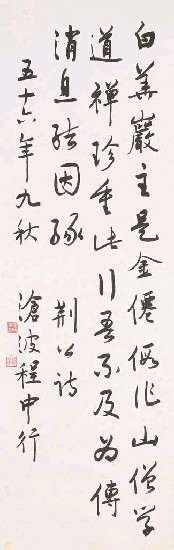 白華巖主是金僊假作山僧學
道禪珍重此行吾不及為傳
消息結因緣 荆公詩
五十六年九秋 滄波程中行